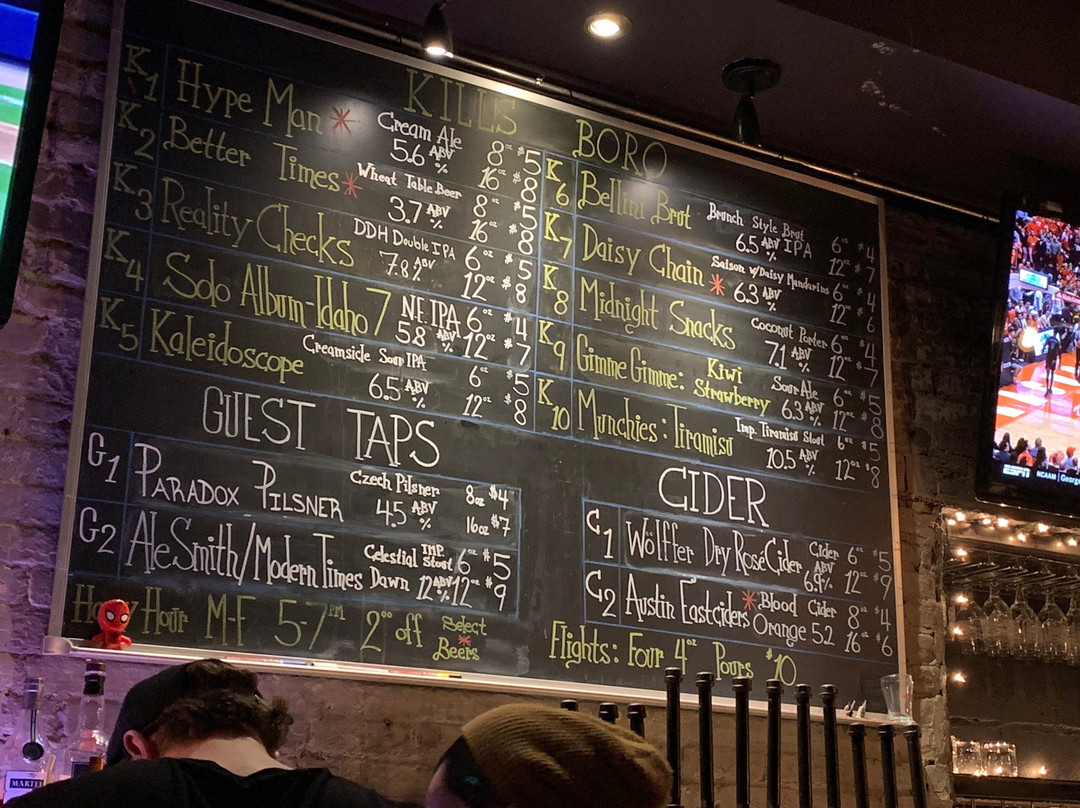 KILLS BORO
K1 Hype Man * Cream Ale 5.6 ABV % 8oz $5 16oz $8
K2 Better Times * Wheat Table Beer 3.7 ABV % 8oz $5 16oz $8
K3 Reality Checks DDH Double IPA 7.8 ABV % 6oz $5 12oz $8
K4 Solo Album-Idaho 7 NE IPA 5.8 ABV % 6oz $4 12oz $7
K5 Kaleidoscope Creamside Sour IPA 6.5 ABV % 6oz $5 12oz $8
K6 Bellini Brut Brunch Style Brut IPA 6.5 ABV % 6oz $4 12oz $7
K7 Daisy Chain * Saison w/Daisy Mandarins 6.3 ABV % 6oz $4 12oz $6
K8 Midnight Snacks Coconut Porter 7.1 ABV % 6oz $4 12oz $7
K9 Gimme Gimme: Kiwi Strawberry Sour Ale 6.3 ABV % 6oz $5 12oz $8
K10 Munchies: Tiramisu Imp. Tiramisu Stout 10.5 ABV % 6oz $5 12oz $8
GUEST TAPS
G1 PARADOX PILSNER Czech Pilsner 4.5 ABV % 8oz $4 16oz $7
G2 AleSmith/Modern Times Celestial Dawn IMP. Stout 12 ABV % 6oz $5 12oz $9
CIDER
C1 Wölffer Dry Rosé Cider Cider 6.9 ABV % 6oz $5 12oz $9
C2 Austin Eastciders * Blood Orange Cider 5.2 8oz $4 16oz $6
Happy Hour M-F 5-7pm 2.00 off Select * Beers
Flights: Four 4oz Pours $10
ESPN NCAAM
MARTELL